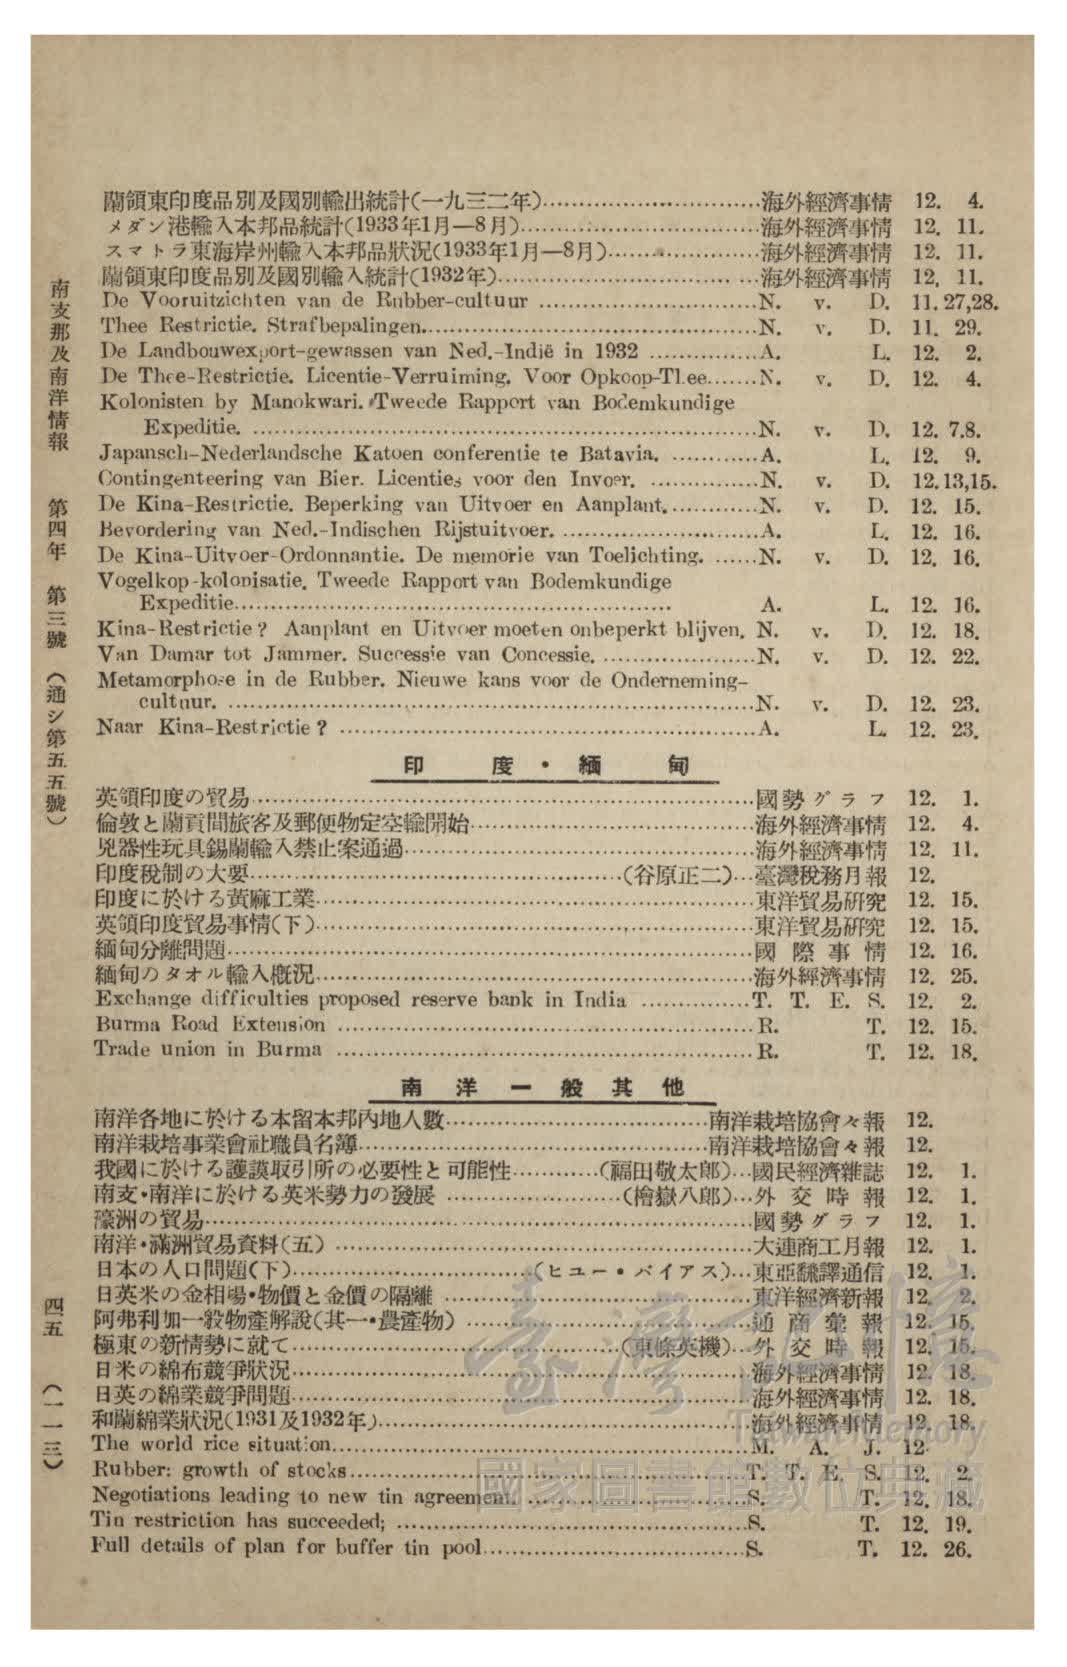 蘭領東印度品別及國別輸出統計(一九三二年)……海外經濟事情 12. 4.
メダン港輸入本邦品統計(1933年1月—8月)……海外經濟事情 12. 11.
スマトラ東海岸州輸入本邦品狀況(1933年1月—8月)……海外經濟事情 12. 11.
蘭領東印度品別及國別輸入統計(1932年)……海外經濟事情 12. 11.
De Vooruitzichten van de Rubber-cultuur ……N. v. D. 11. 27,28.
Thee Restrictie. Strafbepalingen.……N. v. D. 11. 29.
De Landbouwexport-gewassen van Ned.-Indië in 1932 ……A. L. 12. 2.
De Thee-Restrictie. Licentie-Verruiming. Voor Opkoop-Thee……N. v. D. 12. 4.
Kolonisten by Manokwari. Tweede Rapport van Bodemkundige
Expeditie. ……N. v. D. 12. 7.8.
Japansch-Nederlandsche Katoen conferentie te Batavia. ……A. L. 12. 9.
Contingenteering van Bier. Licenties voor den Invoer. ……N. v. D. 12. 13,15.
De Kina-Restrictie. Beperking van Uitvoer en Aanplant.……N. v. D. 12. 15.
Bevordering van Ned.-Indischen Rijstuitvoer. ……A. L. 12. 16.
De Kina-Uitvoer-Ordonnantie. De memorie van Toelichting. ……N. v. D. 12. 16.
Vogelkop-kolonisatie. Tweede Rapport van Bodemkundige
Expeditie…… A. L. 12. 16.
Kina-Restrictie? Aanplant en Uitvoer moeten onbeperkt blijven. N. v. D. 12. 18.
Van Damar tot Jammer. Successie van Concessie. ……N. v. D. 12. 22.
Metamorphose in de Rubber. Nieuwe kans voor de Onderneming-
cultuur. ……N. v. D. 12. 23.
Naar Kina-Restrictie? ……A. L. 12. 23.
印度・緬甸
英領印度の貿易……國勢グラフ 12. 1.
倫敦と蘭貢間旅客及郵便物定空輸開始……海外經濟事情 12. 4.
兇器性玩具錫蘭輸入禁止案通過……海外經濟事情 12. 11.
印度稅制の大要……(谷原正二)…臺灣稅務月報 12.
印度に於ける黃麻工業……東洋貿易硏究 12. 15.
英領印度貿易事情(下)……東洋貿易硏究 12. 15.
緬甸分離問題……國際事情 12. 16.
緬甸のタオル輸入槪況……海外經濟事情 12. 25.
Exchange difficulties proposed reserve bank in India ……T. T. E. S. 12. 2.
Burma Road Extension ……R. T. 12. 15.
Trade union in Burma ……R. T. 12. 18.
南洋一般其他
南洋各地に於ける本留本邦內地人數……南洋栽培協會々報 12.
南洋栽培事業會社職員名簿……南洋栽培協會々報 12.
我國に於ける護謨取引所の必要性と可能性……(福田敬太郎)…國民經濟雜誌 12. 1.
南支・南洋に於ける英米勢力の發展 ……(檜嶽八郎)…外交時報 12. 1.
濠洲の貿易……國勢グラフ 12. 1.
南洋・滿洲貿易資料(五) ……大連商工月報 12. 1.
日本の人口問題(下)……(ヒユー・バイアス)…東亞飜譯通信 12. 1.
日英米の金相場・物價と金價の隔離 ……東洋經濟新報 12. 2.
阿弗利加一般物產解說(其一・農產物) ……通商彙報 12. 15.
極東の新情勢に就て……(東條英機)…外交時報 12. 15.
日米の綿布競爭狀況……海外經濟事情 12. 18.
日英の綿業競爭問題……海外經濟事情 12. 18.
和蘭綿業狀況(1931及1932年)……海外經濟事情 12. 18.
The world rice situation……M. A. J. 12.
Rubber: growth of stocks……T. T. E. S. 12. 2.
Negotiations leading to new tin agreement. ……S. T. 12. 18.
Tin restriction has succeeded; ……S. T. 12. 19.
Full details of plan for buffer tin pool……S. T. 12. 26.
南支那及南洋情報 第四年 第三號 (通シ第五五號)
四五 (一一三)
臺灣記憶
Taiwan Memory
國家圖書館數位典藏